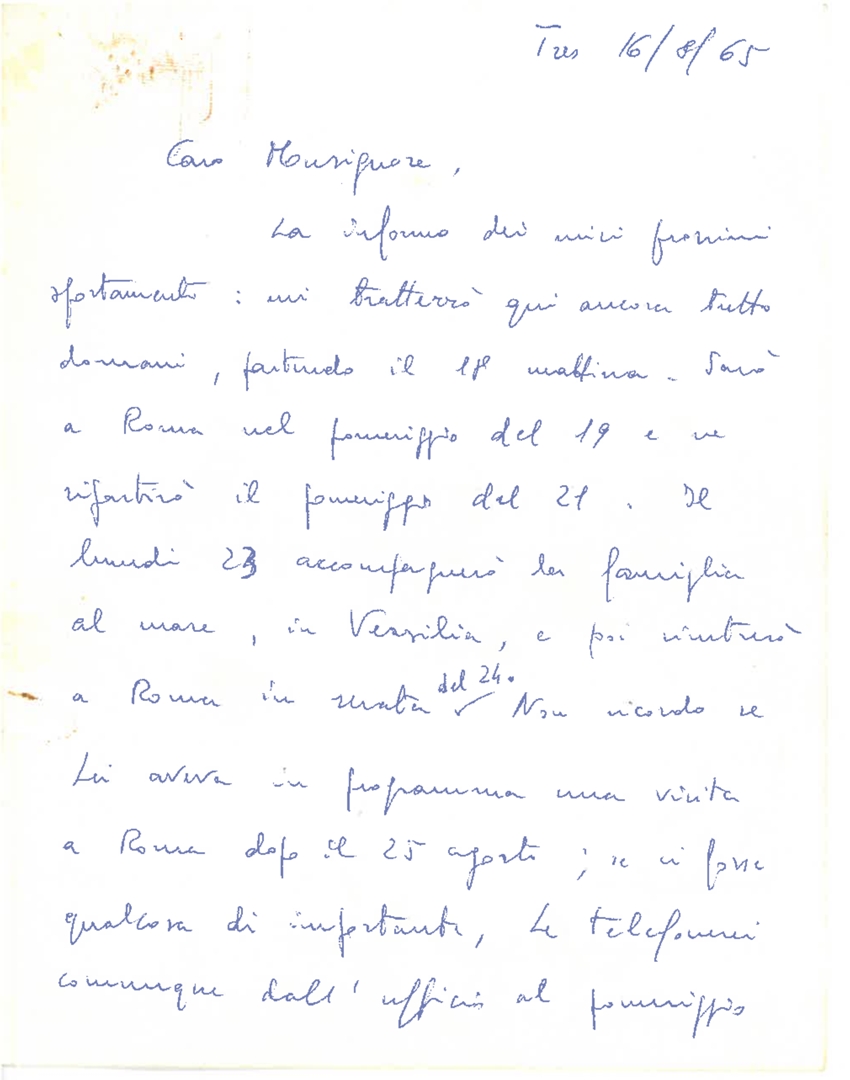 Tres 16/8/65
Caro Monsignore,
La informo dei miei prossimi
spostamenti: mi tratterrò qui ancora tutto
domani, partendo il 18 mattina. Sarò
a Roma nel pomeriggio del 19 e ne
ripartirò il pomeriggio del 21. Il
lunedì 23 accompagnerò la famiglia
al mare, in Versilia, e poi rientrerò
a Roma in serata del 24. Non ricordo se
Lei aveva in programma una visita
a Roma dopo il 25 agosto; se ci fosse
qualcosa di importante, Le telefonerei
comunque dall'ufficio al pomeriggio